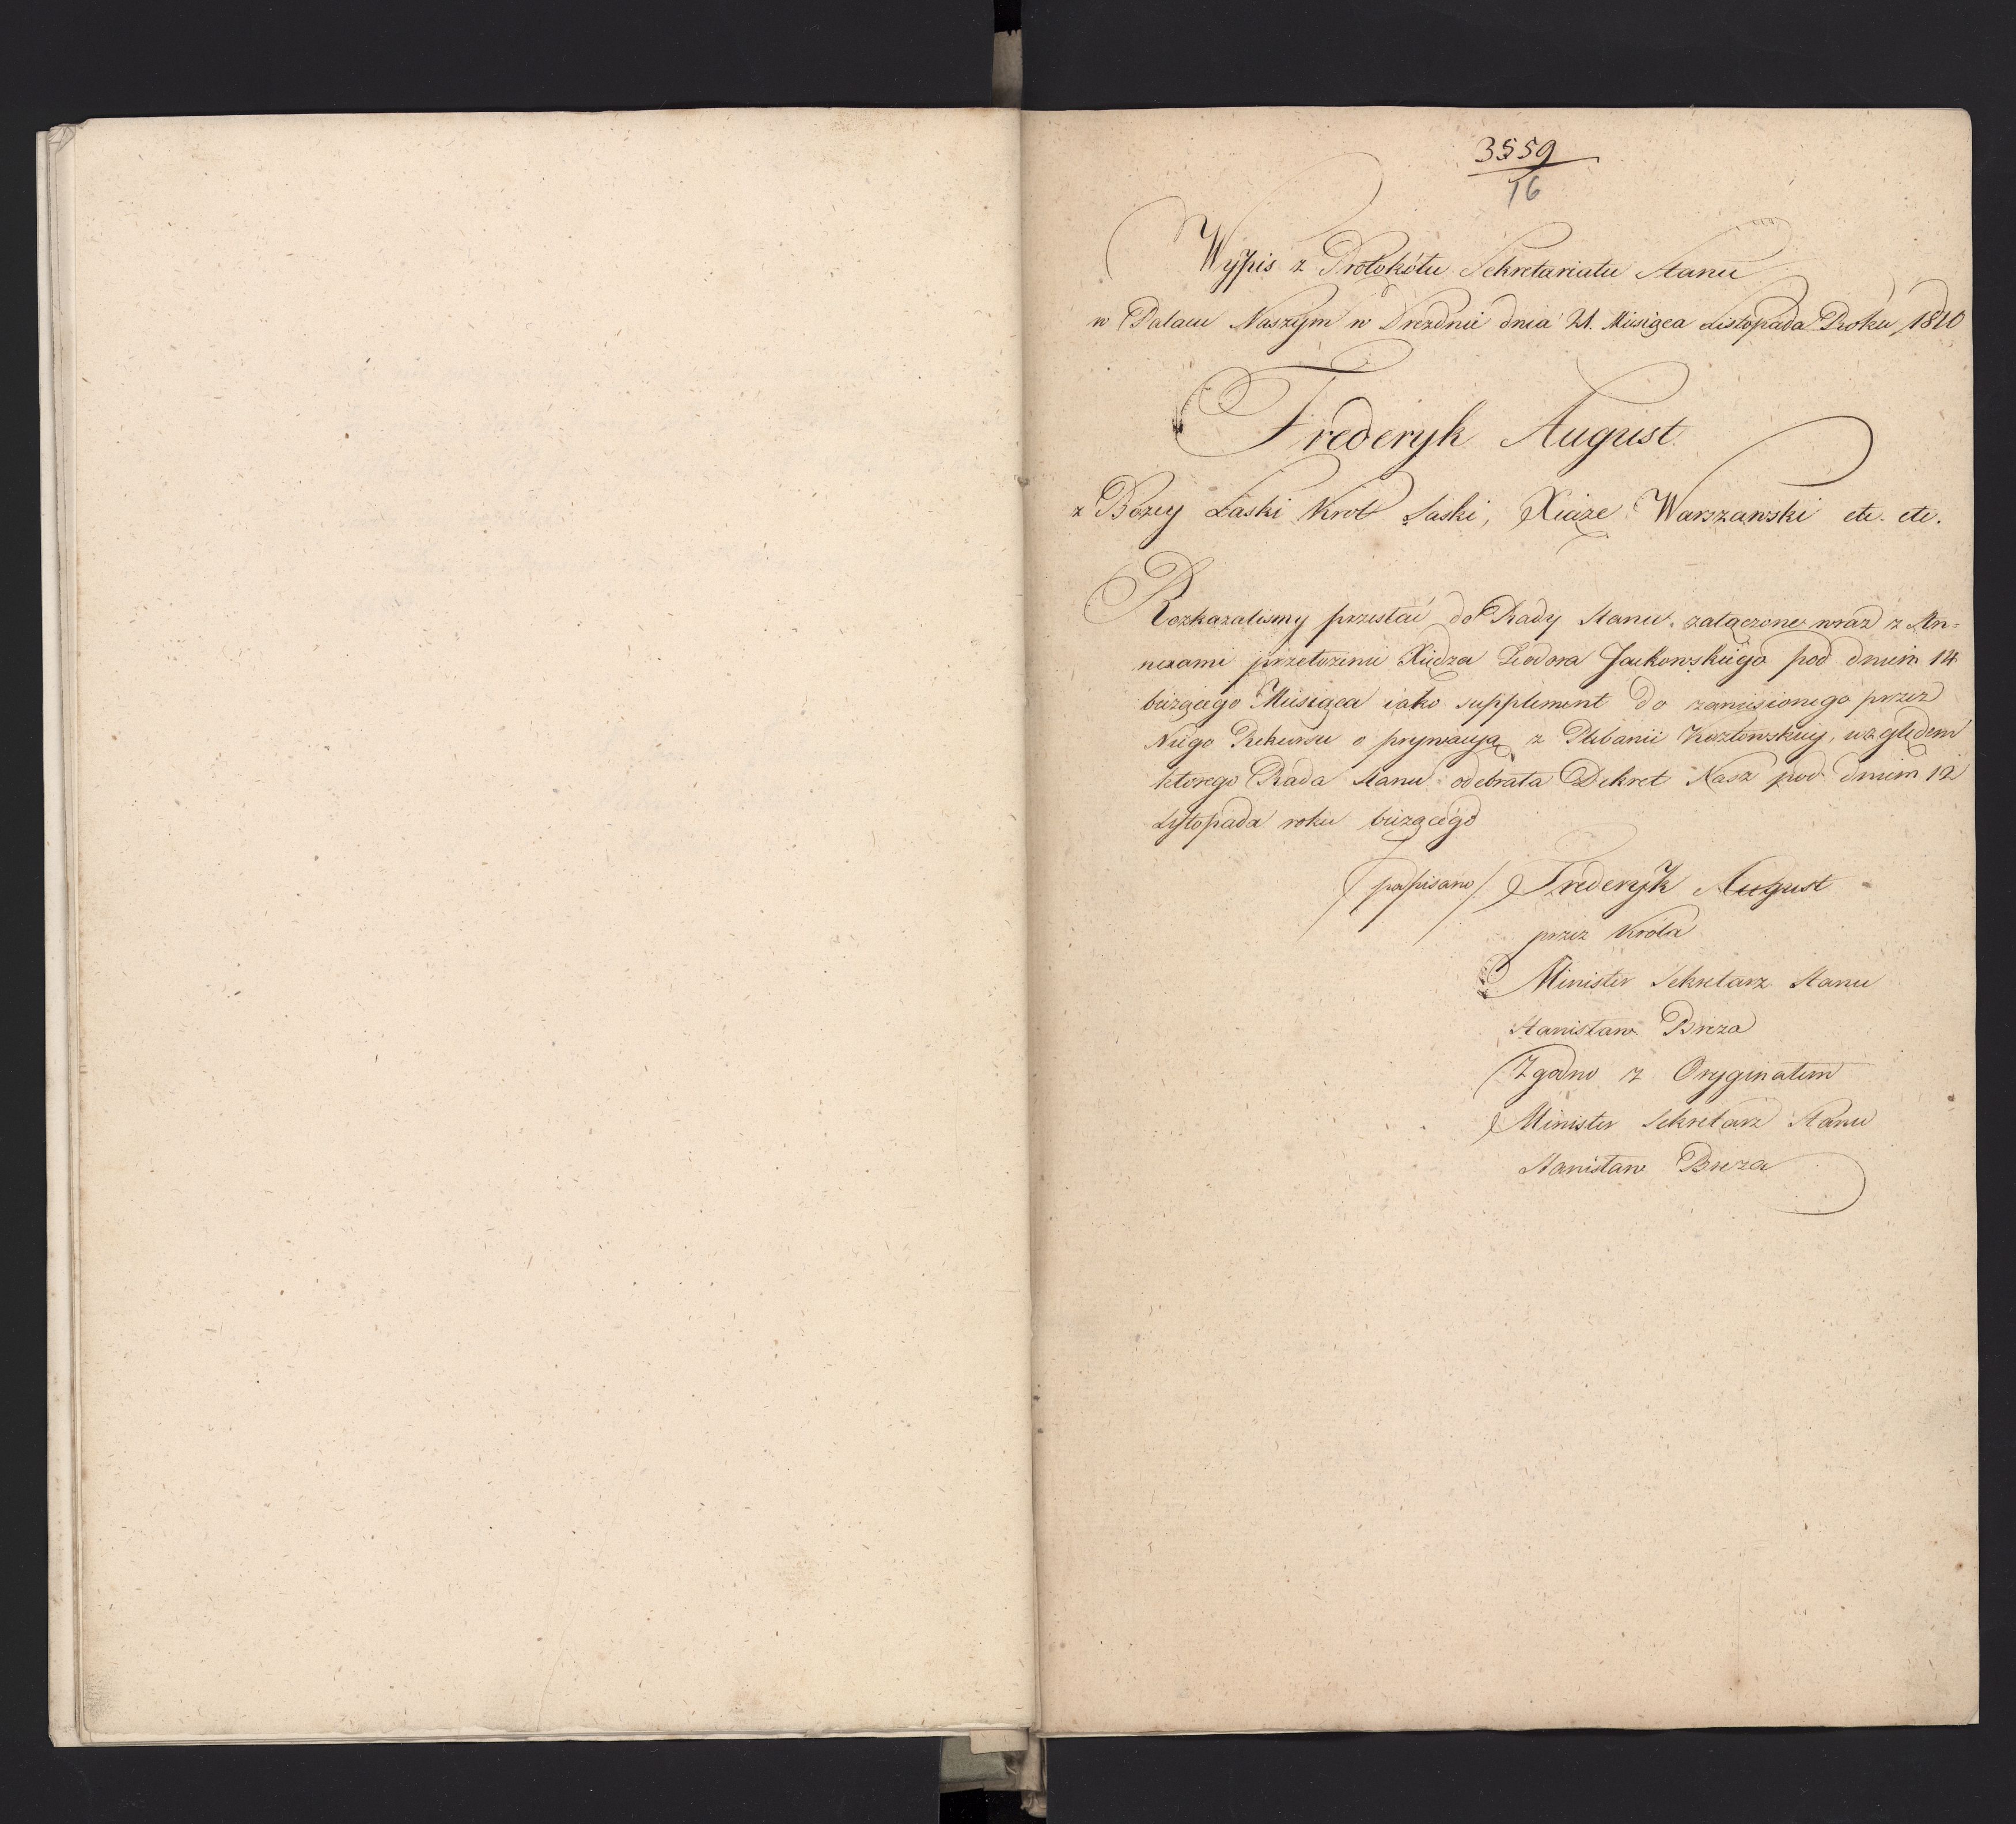 3559
16
Wypis z Protokółu Sekretariatu Stanu
w Pałacu Naszym w Dreznie dnia 21. Miesiąca Listopada Roku 1810
Frederyk August
z Bożey Łaski Król Saski, Xiąże Warszawski etc. etc.
Rozkazaliśmy przesłać do Rady Stanu załączone wraz z An=
nexami przełożenie Xiędza Teodora Jackowskiego pod dniem 14
bieżącego Miesiąca iako supplement do zaniesionego przez
Niego Rekursu o prywacyą z Plebanii Kozłowskiey, względem
którego Rada Stanu odebrała Dekret Nasz pod dniem 12
Lystopada roku bieżącego
/podpisano/ Frederyk August
przez Króla
Minister Sekretarz Stanu
Stanisław Breza
Zgodno z Oryginałem
Minister Sekretarz Stanu
Stanisław Breza